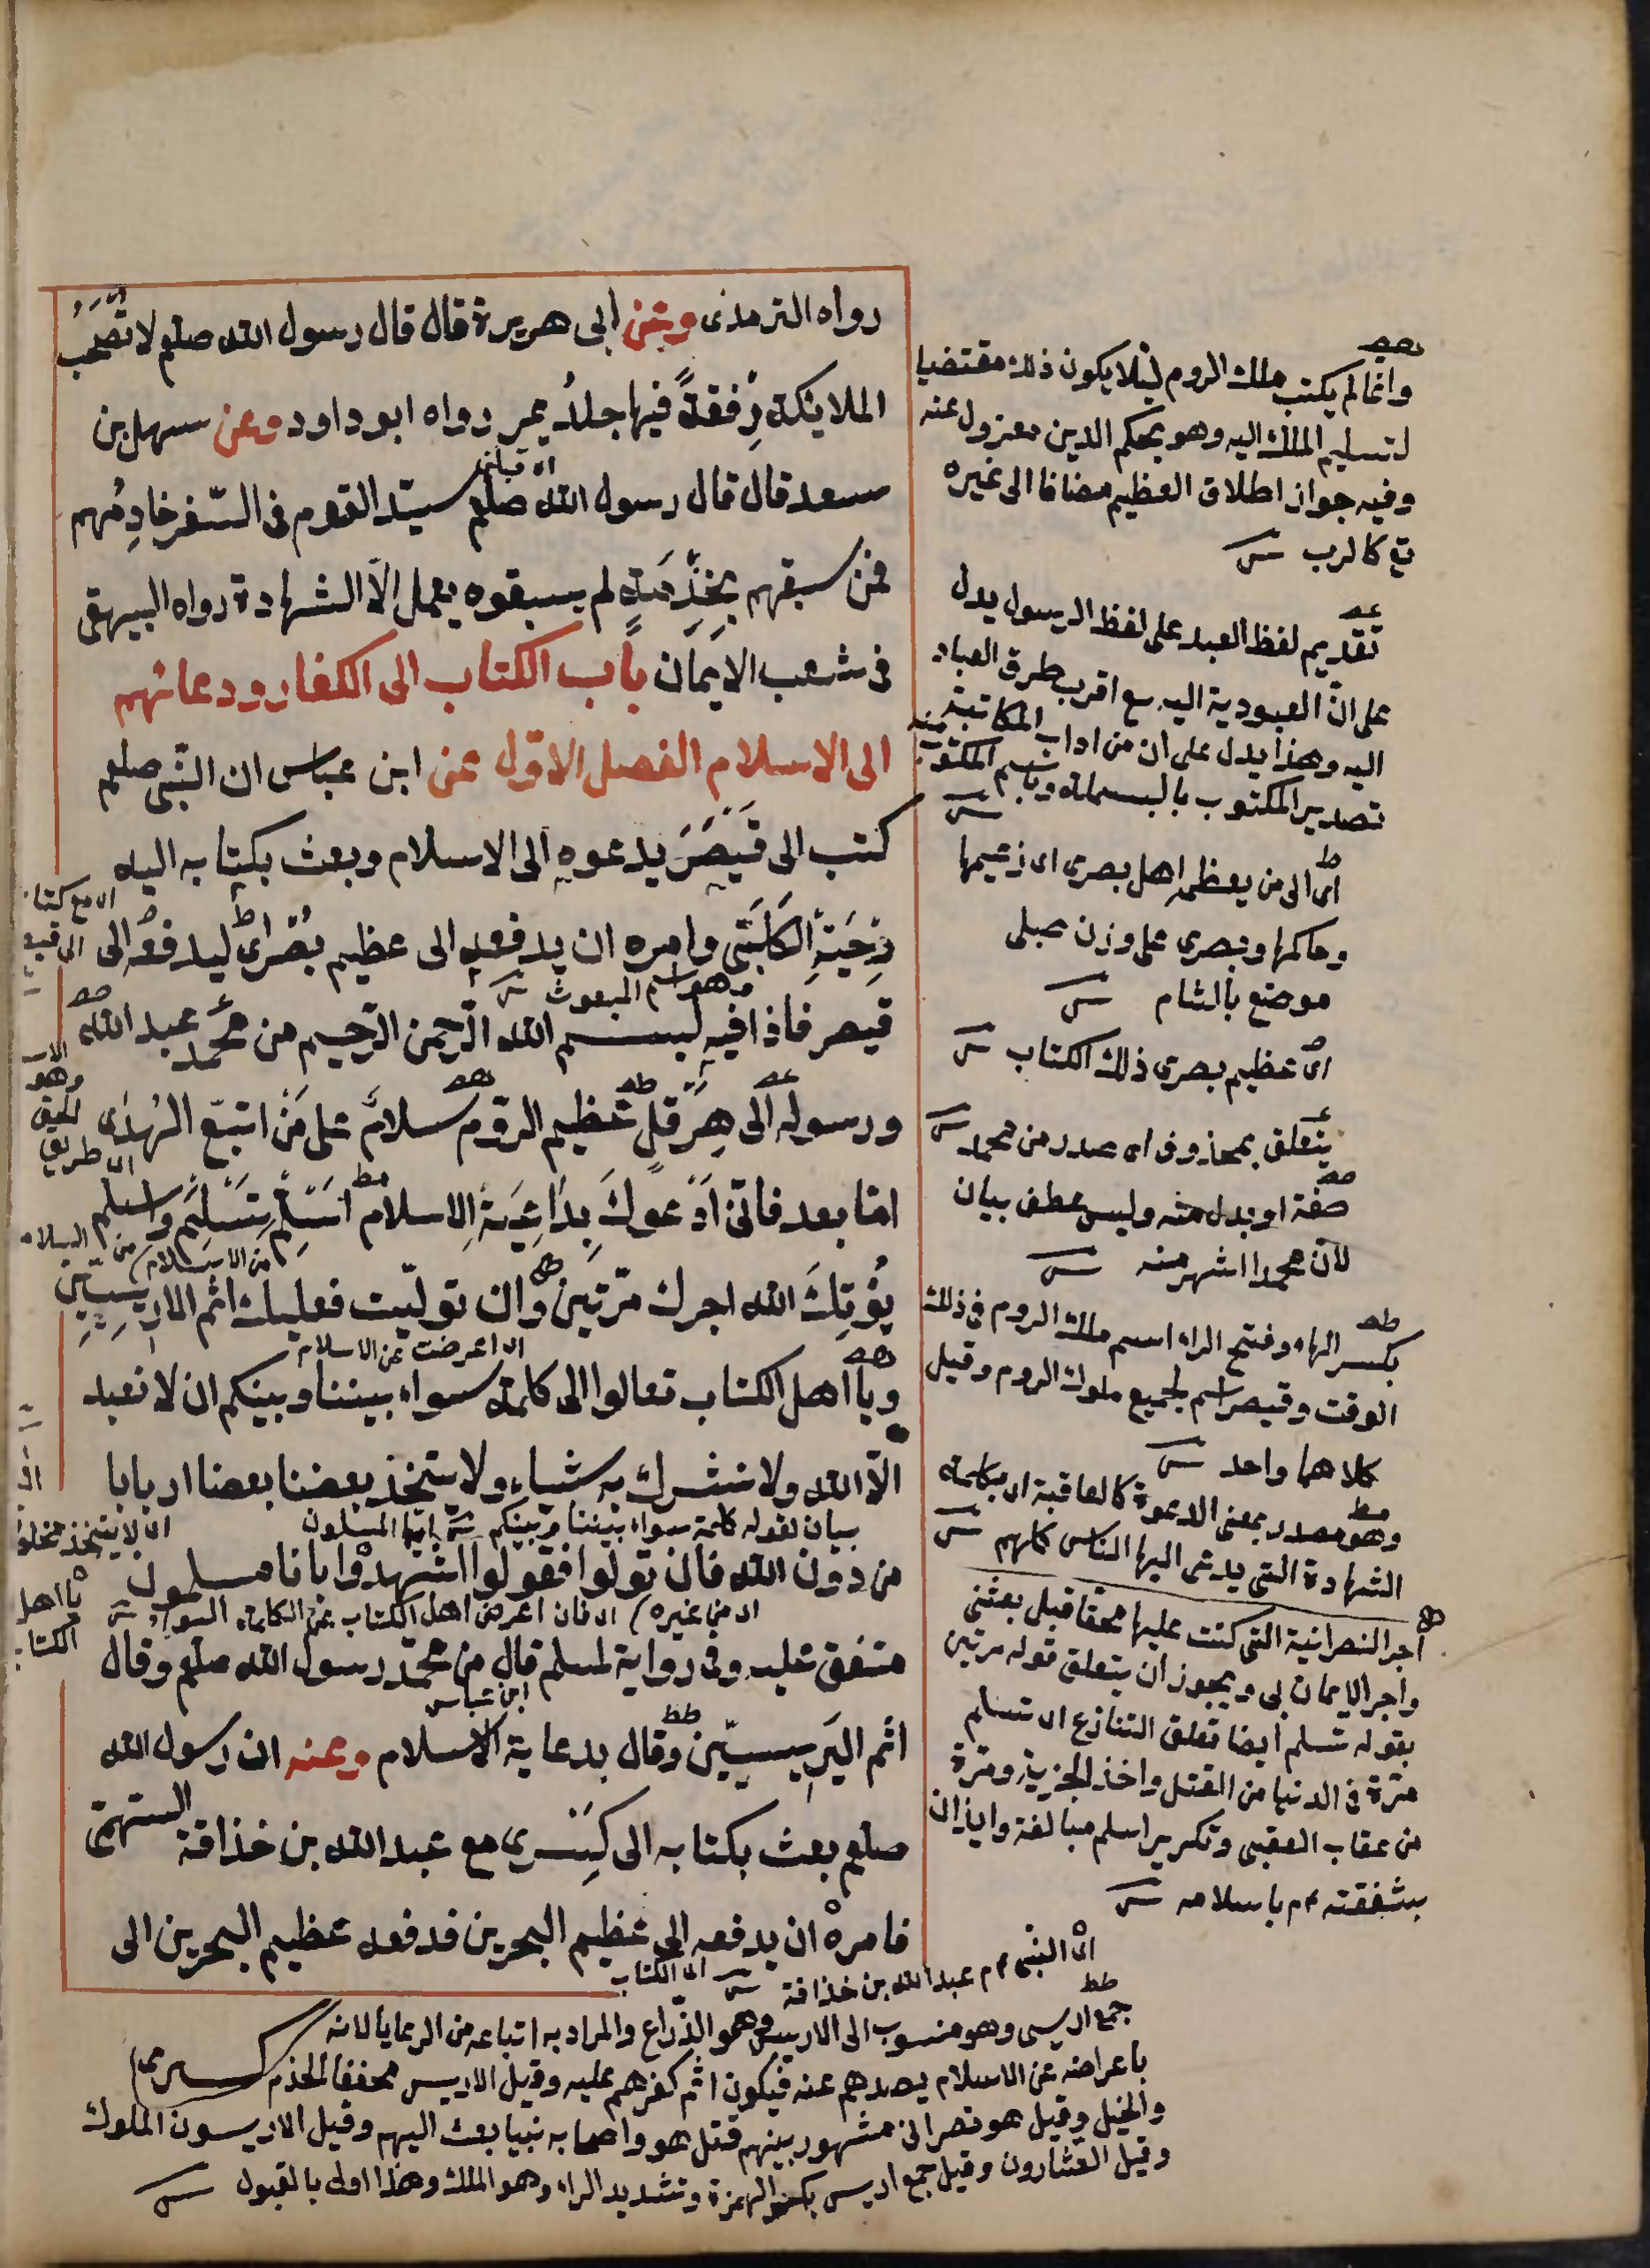 رواه الترمذى وعن ابى هريرة قال قال رسول الله صلعم لا تَصْحَبُ
الملائكة رُِفقةً فيها جلدُ نمر رواه ابو داود وعن سهل بن
سعد قال قال رسول الله صلعم سيّد القوم فى السّفر خادِمُهم
فمن سبقهم بخِدْمَةٍ لم يسبقوه بعمل الّا الشهادة رواه البيهقى
فى شعب الايمان باب الكتاب الى الكفار ودعائهم
الى الاسلام الفصل الاوّل عن ابن عباس ان النّبى صلعم
كتب الى قَيْصَرَ يدعوه الى الاسلام وبعث بكتابه اليه
دِحْيَةَ الكَلْبَىَّ وامره ان يدفعه الى عظيم بُصْرى ليدفعه الى
وهو اسم المبعوث
قيصر فاذا فيه بسم الله الرّحمن الرّحيم من محمد عبد الله
ورسوله الى هِرَقْلَ عظيم الرّوم سلامٌ على مَنْ اتبّع الهُدَى
امّا بعد فانّى اَدْعوكَ بِدَاعِيَةِ الاسلام اَسْلِمْ تَسْلَمْ واسلم
من الاسلام
يُؤْتِكَ الله اجرك مرّتين وان تولّيت فعليك اثم الاريسيّين
اى اعرضت عن الاسلام
ويا اهل الكتاب تعالوا الى كلمة سواء بيننا وبينكم ان لا نعبد
الّا الله ولا نشرك به شياء ولا يتخذ بعضنا بعضا اربابا
بيان لقوله كلمة سواء بيننا وبينكم
من دون الله فان تولوا فقولوا اشهدوا بانا مسلمون
اى من غيره اى فان اعرض اهل الكتاب عن الكلمة السواء
متفق عليه وفى رواية لمسلم قال من محمّد رسول الله صلعم وقال
ابن عباس
اثم اليَرِيسيّين وقال بدعاية الاسلام وعنه ان رسول الله
صلعم بعث بكتابه الى كِسْرى مع عبد الله بن حذافة السهمّى
فامره ان يدفعه الى عظيم البحرين فدفعه عظيم البحرين الى
اى الكتاب
وانما لم يكتب ملك الروم لئلا يكون ذلك مقتضيا
لتسليم الملك اليه وهو بحكم الدين معزول عنه
وفيه جواز اطلاق العظيم مضافا الى غيره
تع كالرب
تقديم لفظ العبد على لفظ الرسول يدل
على انّ العبودية اليه تع اقرب طرق العباد
اليه وهذا يدل على ان من اداب المكاتبة
تصدير المكتوب بالبسملة وباسم المكتوب منه
اى الى من يعظمه اهل بصرى اى زعيمها
وحاكمها وبصرى على وزن حبلى
موضع بالشام
اى عظيم بصرى ذلك الكتاب
يتعلق بمحذوف اى صدر من محمد
صفة او بدل منه وليس عطف بيان
لان محمدا اشهر منه
بكسر الهاء وفتح الراء اسم ملك الروم فى ذلك
الوقت وقيصر اسم لجميع ملوك الروم وقيل
كلاهما واحد
وهو مصدر بمعنى الدعوة كالعاقبة اى بكلمة
الشهادة التى يدعى اليها الناس كلهم
اجر النصرانية التى كنت عليها محقا قبل بعثتى
واجر الايمان بى ويجوز ان يتعلق قوله مرتين
بقوله تسلم ايضا تعلق التنازع اى تسلم
مرة فى الدنيا من القتل واخذ الجزية ومرة
من عقاب العقبى وتكرير اسلم مبالغة وايذان
بشفقته عم باسلامه
اى النبى عم عبد الله بن حذافة
جمع اريسى وهو منسوب الى الاريس وهو الذراع والمراد به اتباعه من الرعايا لانه
باعراضه عن الاسلام يصدهم عنه فيكون اثم كفرهم عليه وقيل الاريس محففا الخدم
والخيل وقيل هو نصرانى مشهور بينهم قتل هو واصحابه نبيا بعث اليهم وقيل الاريسون الملوك
وقيل العشارون وقيل جمع اريس بكسر الهمزة وتشديد الراء وهو الملك وهذا اولى بالقبول